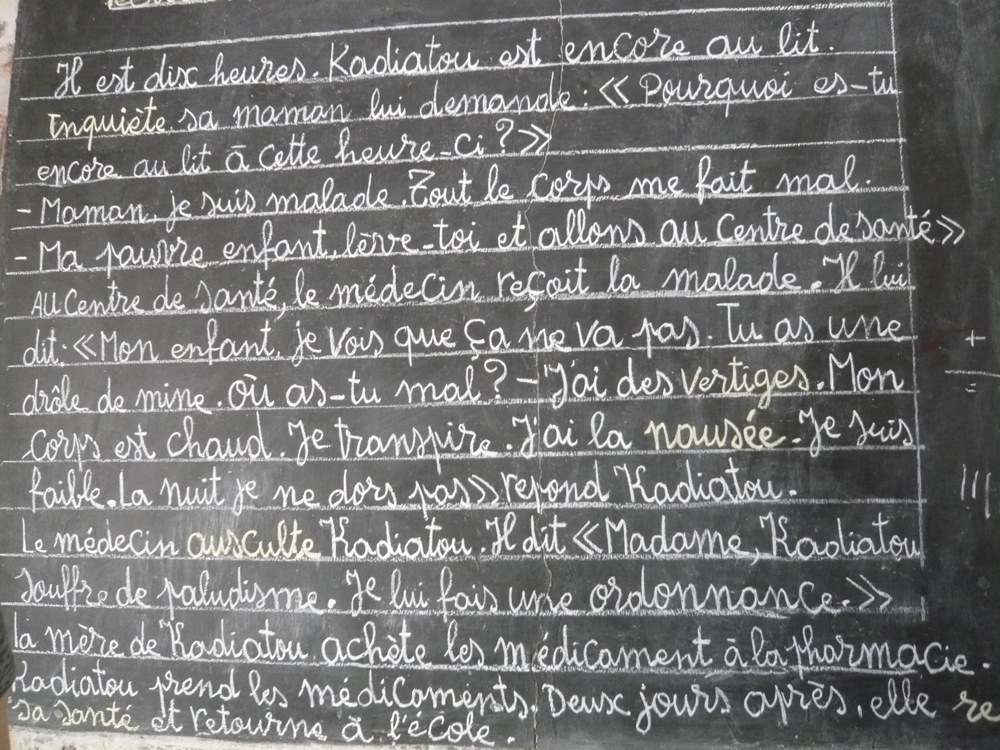 Il est dix heures. Kadiatou est encore au lit.
Inquiète sa maman lui demande : « Pourquoi es-tu
encore au lit à cette heure-ci ? »
- Maman, je suis malade. Tout le corps me fait mal.
- Ma pauvre enfant, lève-toi et allons au Centre de santé »
Au Centre de santé, le médecin reçoit la malade. Il lui
dit : « Mon enfant, je vois que ça ne va pas. Tu as une
drôle de mine. Où as-tu mal ? - J'ai des vertiges. Mon
corps est chaud. Je transpire. J'ai la nausée. Je suis
faible. La nuit je ne dors pas » repond Kadiatou.
Le médecin ausculte Kadiatou. Il dit « Madame, Kadiatou
souffre de paludisme. Je lui fais une ordonnance. »
la mère de Kadiatou achète les médicament à la pharmacie.
Kadiatou prend les médicaments. Deux jours après, elle re
sa santé et retourne à l'école.